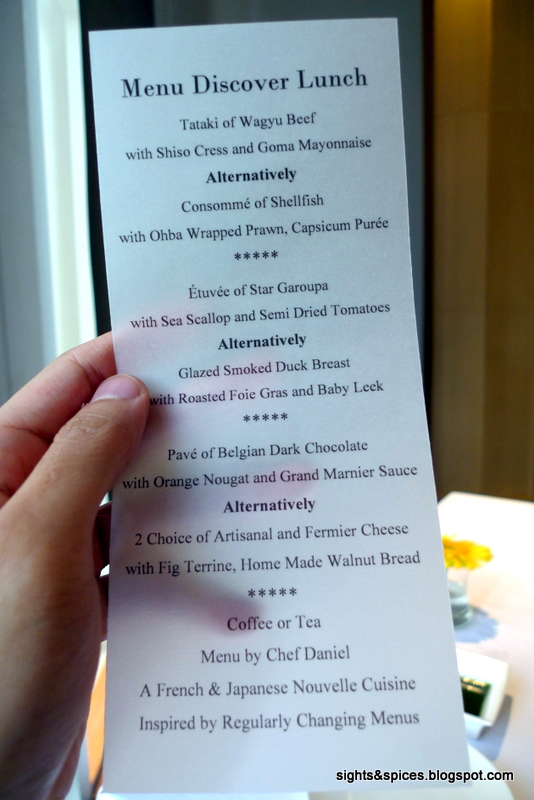 Menu Discover Lunch
Tataki of Wagyu Beef
with Shiso Cress and Goma Mayonnaise
Alternatively
Consommé of Shellfish
with Ohba Wrapped Prawn, Capsicum Purée
*****
Étuvée of Star Garoupa
with Sea Scallop and Semi Dried Tomatoes
Alternatively
Glazed Smoked Duck Breast
with Roasted Foie Gras and Baby Leek
*****
Pavé of Belgian Dark Chocolate
with Orange Nougat and Grand Marnier Sauce
Alternatively
2 Choice of Artisanal and Fermier Cheese
with Fig Terrine, Home Made Walnut Bread
*****
Coffee or Tea
Menu by Chef Daniel
A French & Japanese Nouvelle Cuisine
Inspired by Regularly Changing Menus
sights&spices.blogspot.com